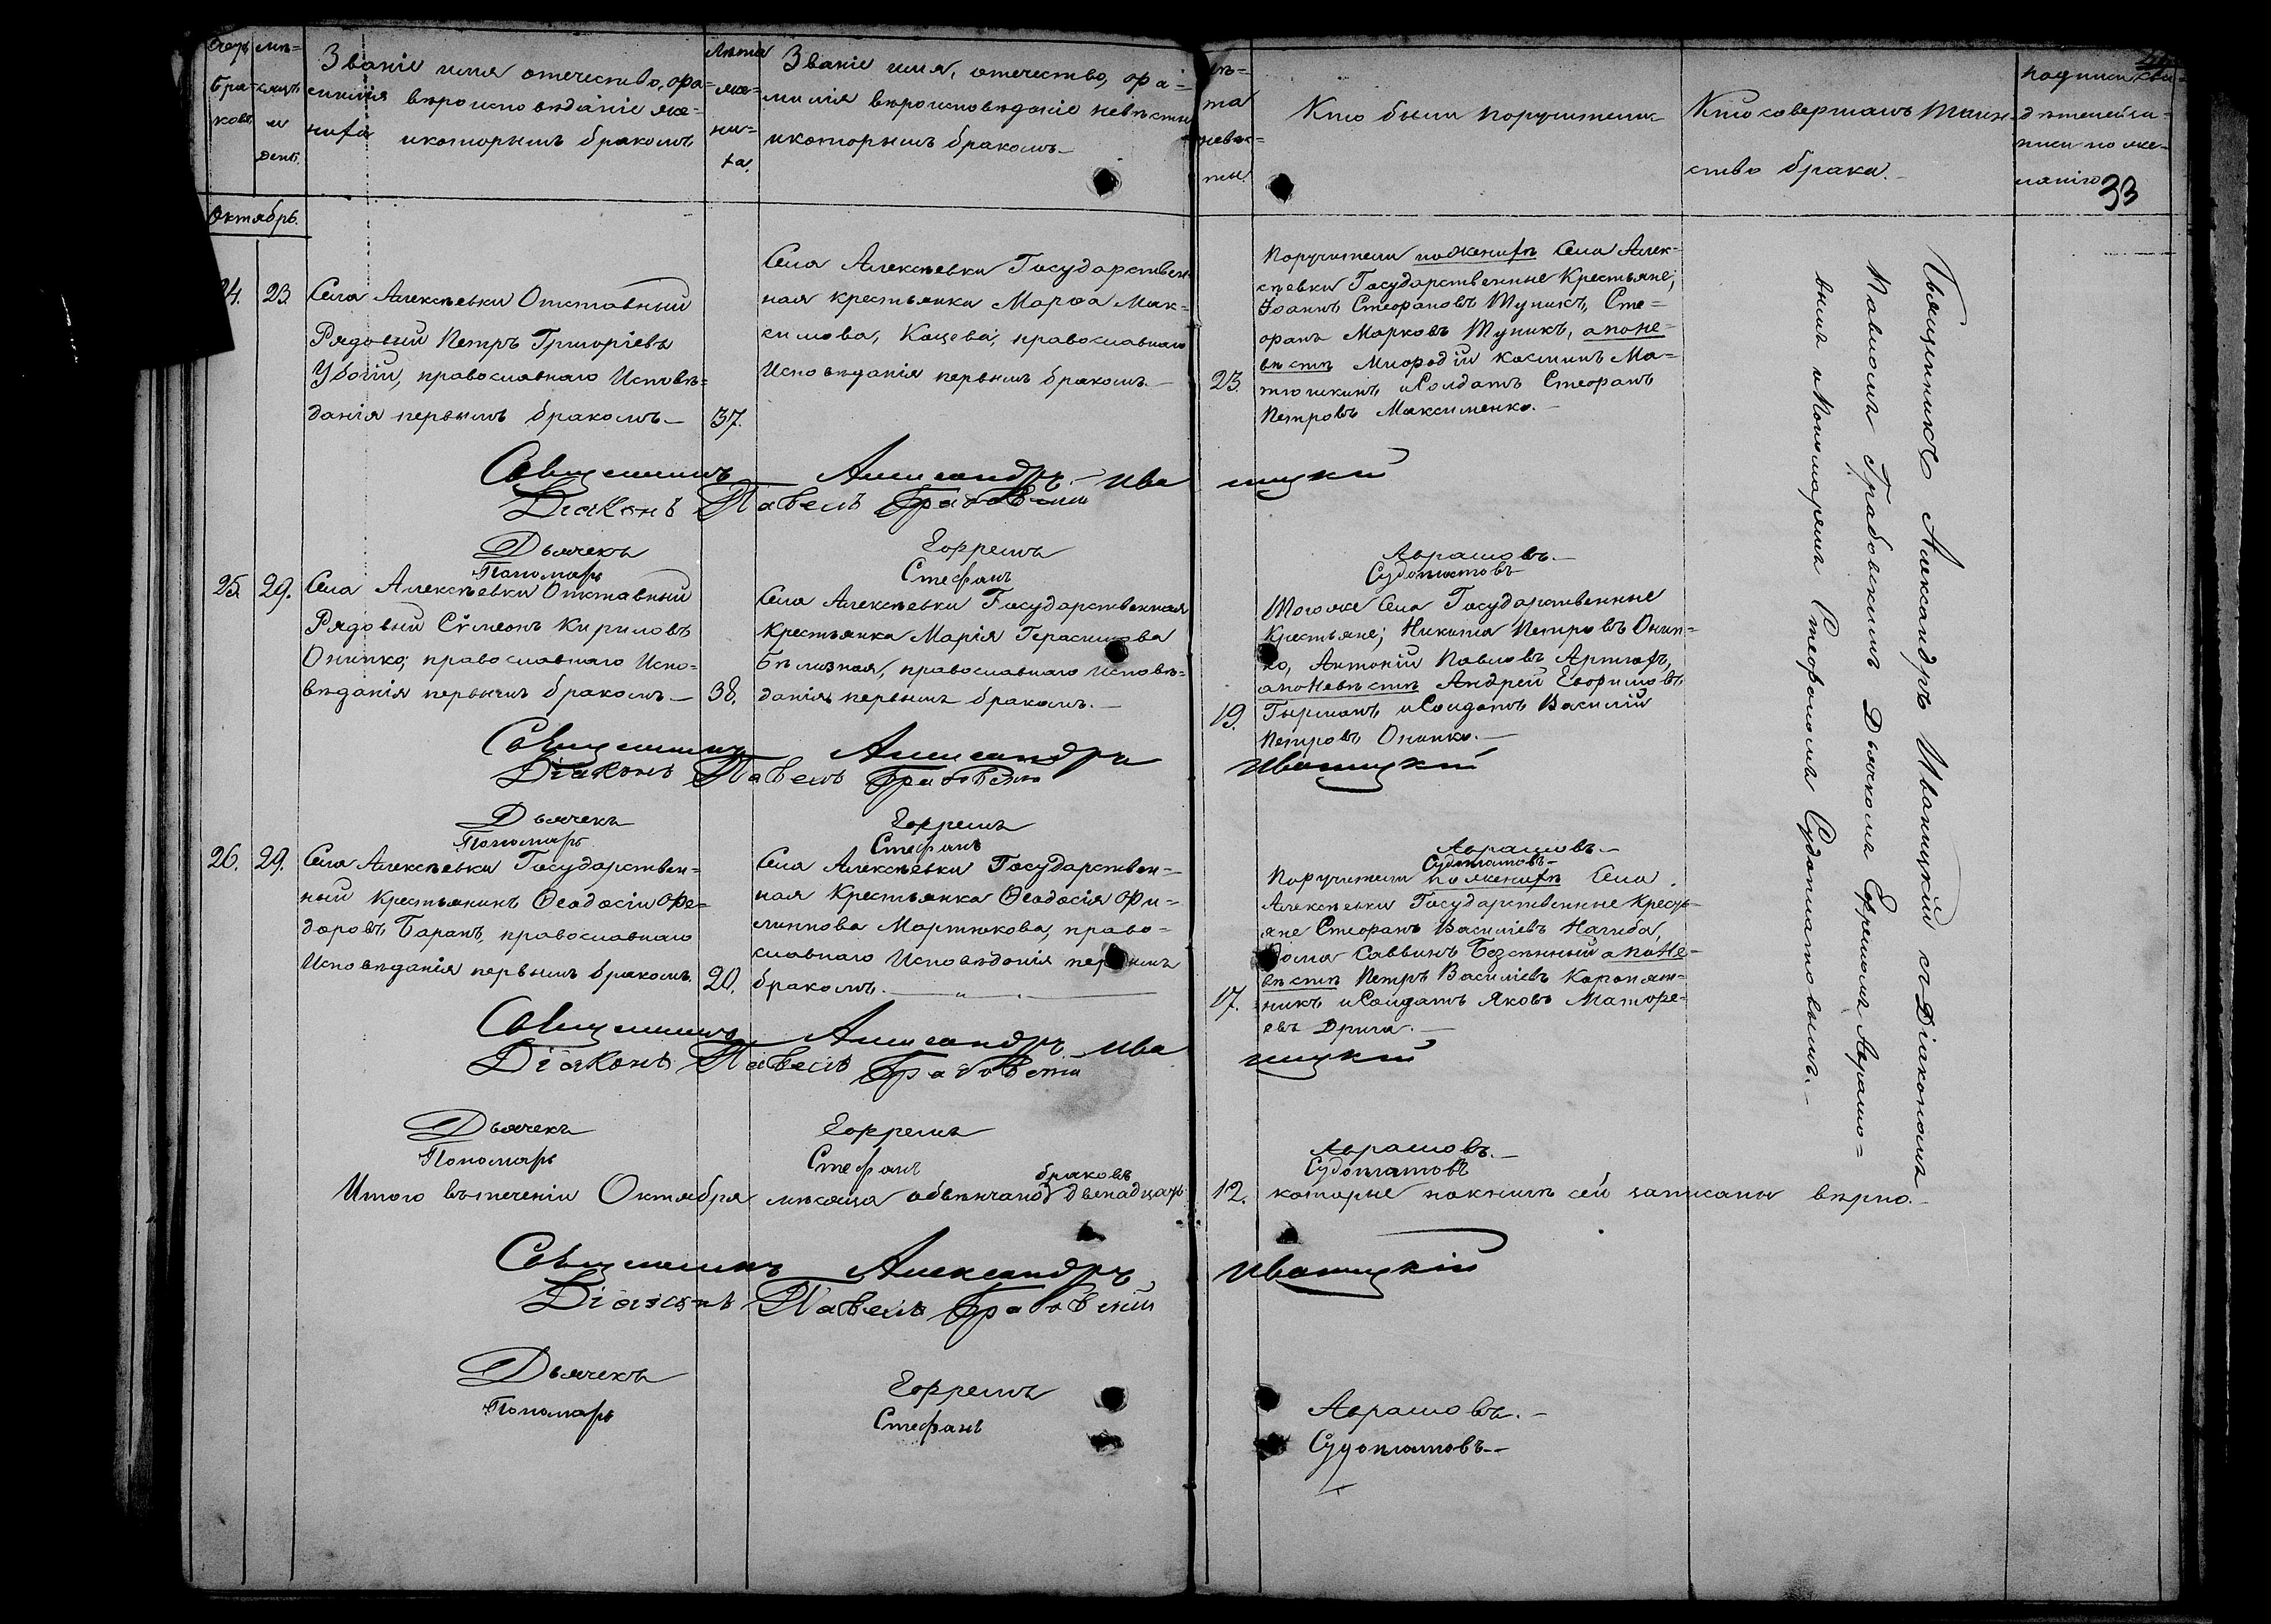 Счетъ
бра-
ковъ.
мѣ-
сяцъ
и
день.
Званіе имя отечество, фа-
милія вѣроисповѣданіе же-
ниха икоторымъ бракомъ
Лѣта
же-
ни-
ха.
Званіе имя, отечество, фа-
милія вѣроисповѣданіе невѣсты
икоторымъ бракомъ
лѣ-
та
невѣс-
ты.
Кто были поручители
Кто совершалъ таин-
ство брака.
подписи сви-
дѣтелей за-
писи по же-
ланію
33
Октябрь.
24. 23.
Села Алексѣевки Отставный
Рядовый Петръ Григоріевъ
Убогій, православнаго Исповѣ-
данія первымъ бракомъ. 37.
Села Алексѣевки Государствен-
ная крестьянка Марѳа Мак-
симова, Кацева, православнаго
Исповѣданія первымъ бракомъ
23.
Поручители поженихѣ Села Алек-
сѣевки Государственные Крестьяне;
Іоаннъ Стефановъ Тупикъ, Сте-
фанъ Марковъ Тупикъ, апоне-
вѣстѣ Мефодій Косминъ Ма-
тюшкинъ иСолдатъ Стефанъ
Петровъ Максименко.
Священникъ Александръ Ива ницкій
Діаконъ Павелъ Грабовскій
Дьячекъ Ефремъ Аврамовъ.
Пономарь Стефанъ Судоплатовъ
25. 29.
Села Алексѣевки Отставный
Рядовый Сѵмеонъ Кириловъ
Онипко, православнаго Испо-
вѣданія первымъ бракомъ. 38.
Села Алексѣевки Государственная
Крестьянка Марія Герасимова
Бѣлизная, православнаго Исповѣ-
данія первымъ бракомъ.
19.
Тогоже Села Государственные
Крестьяне; Никита Петровъ Онип-
ко, Антоній Павловъ Артюхъ,
апоНевѣстѣ Андрей Евфимовъ
Гырманъ, иСолдатъ Василій
Петровъ Онипко.
Священникъ Александръ Иваницкій
Діаконъ Павелъ Грабовскій
Дьячекъ Ефремъ Аврамовъ.
Пономарь Стефанъ Судоплатовъ
26. 29.
Села Алексѣевки Государствен-
ный Крестьянинъ Ѳеодосій Фе-
доровъ Баранъ, православнаго
Исповѣданія первымъ бракомъ. 20.
Села Алексѣевки Государствен-
ная Крестьянка Ѳеодосія Фи-
липпова Мартюкова, право-
славнаго Исповѣданія первымъ
бракомъ.
17.
Поручители поженихѣ Села
Алексѣевки Государственные Кресть-
яне Стефанъ Василіевъ Нагиба,
Ѳома Саввинъ Безпятый апоНе-
вѣстѣ Петръ Василіевъ Коропят-
никъ иСолдатъ Яковъ Матфе-
евъ Дрига.
Священникъ Александръ Ива ницкій
Діаконъ Павелъ Грабовскій
Дьячекъ Ефремъ Аврамовъ.
Пономарь Стефанъ Судоплатовъ
Священникъ Александръ Иваницкій съ Діакономъ
Павломъ Грабовскимъ Дьячкомъ Ефремомъ Аврамо-
вымъ и Пономаремъ Стефаномъ Судоплатовымъ.
браковъ
Итого втеченіи Октября мѣсяца обвѣнчано двенадцать 12. которые покнигѣ сей записаны вѣрно.
Священникъ Александръ Иваницкій
Діаконъ Павелъ Грабовскій
Дьячекъ Ефремъ Аврамовъ.
Пономарь Стефанъ Судоплатовъ